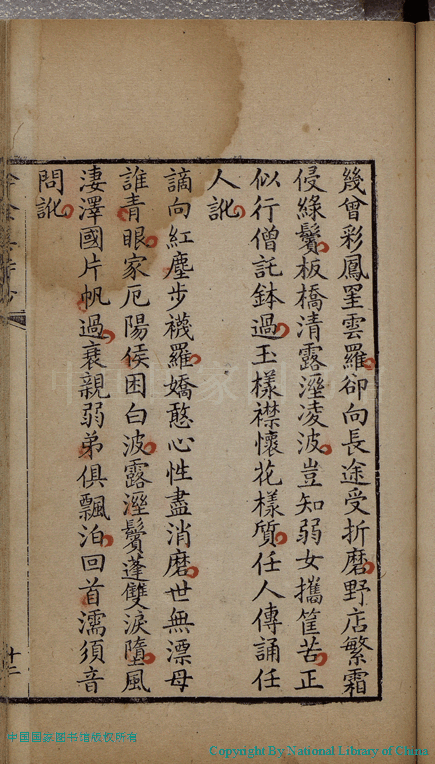 幾曾彩鳳罣雲羅卻向長途受折磨野店繁霜
侵綠鬢板橋清露溼凌波豈知弱女攜筐苦正
似行僧託鉢過玉樣襟懷花樣質任人傳誦任
人訛
謫向紅塵步襪羅嬌憨心性盡消磨世無漂母
誰青眼家厄陽侯困白波露溼鬢蓬雙淚墮風
淒澤國片帆過衰親弱弟俱飄泊回首濡須音
問訛
十二
中国国家图书馆
中国国家图书馆版权所有
Copyright By National Library of China